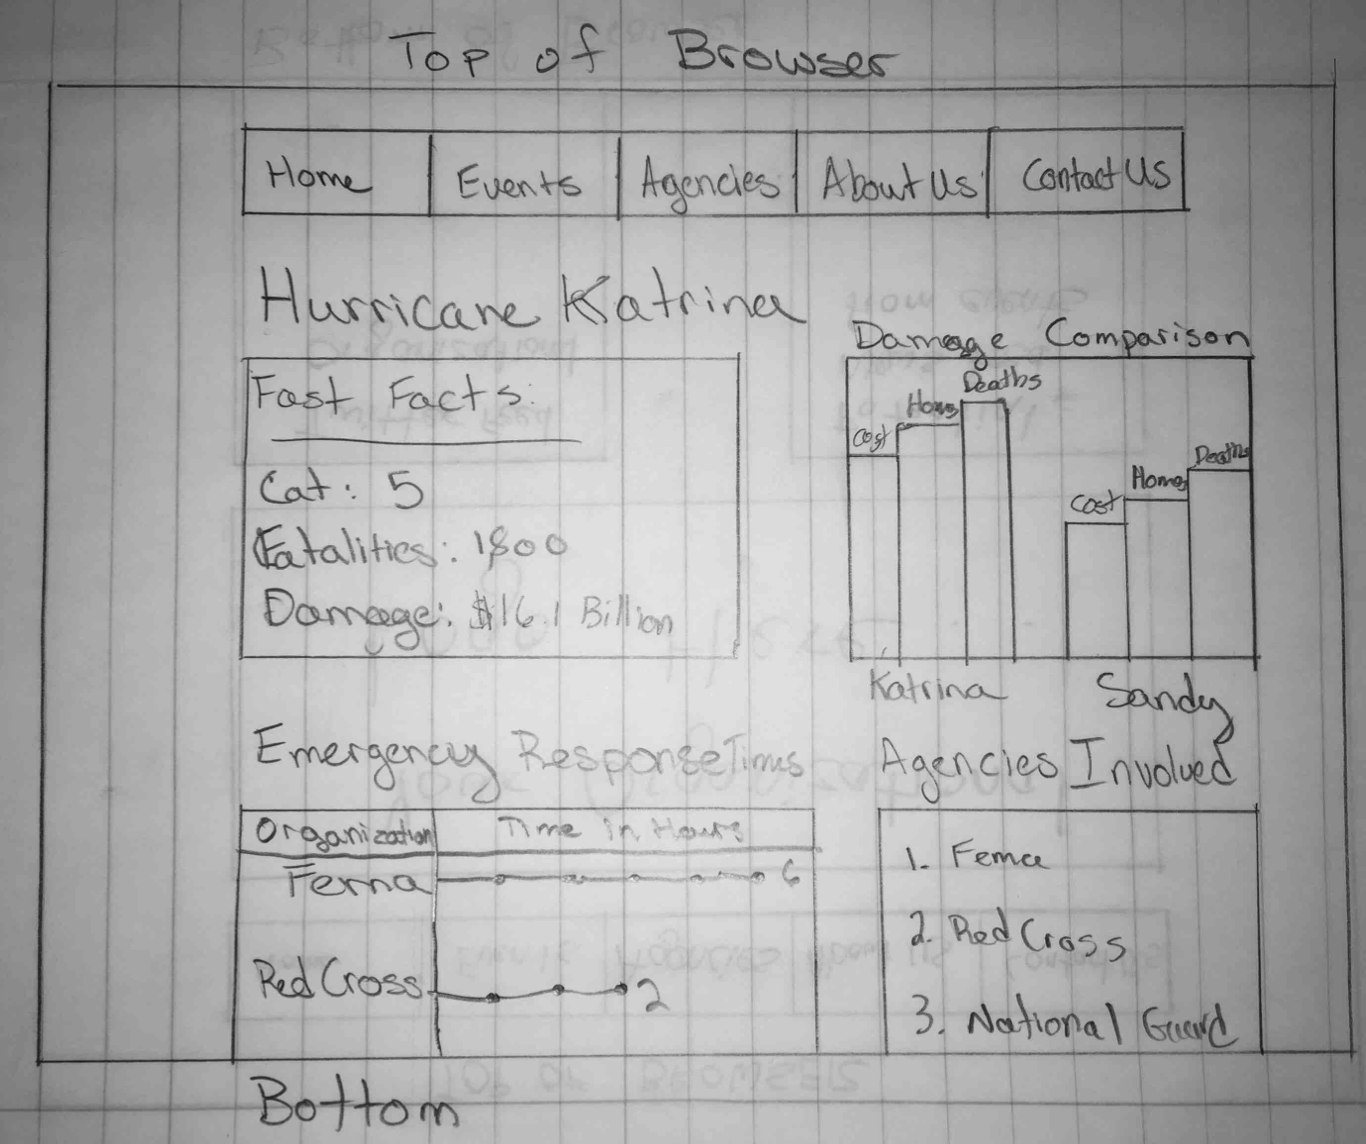 Top of Browser
Home Events Agencies About Us Contact Us
Hurricane Katrina
Damage Comparison
Fast Facts:
Cat: 5
Fatalities: 1800
Damage: $16.1 Billion
Cost Homes Deaths
Cost Homes Deaths
Katrina Sandy
Emergency Response Times
Organization Time in Hours
Fema 6
Red Cross 2
Agencies Involved
1. Fema
2. Red Cross
3. National Guard
Bottom